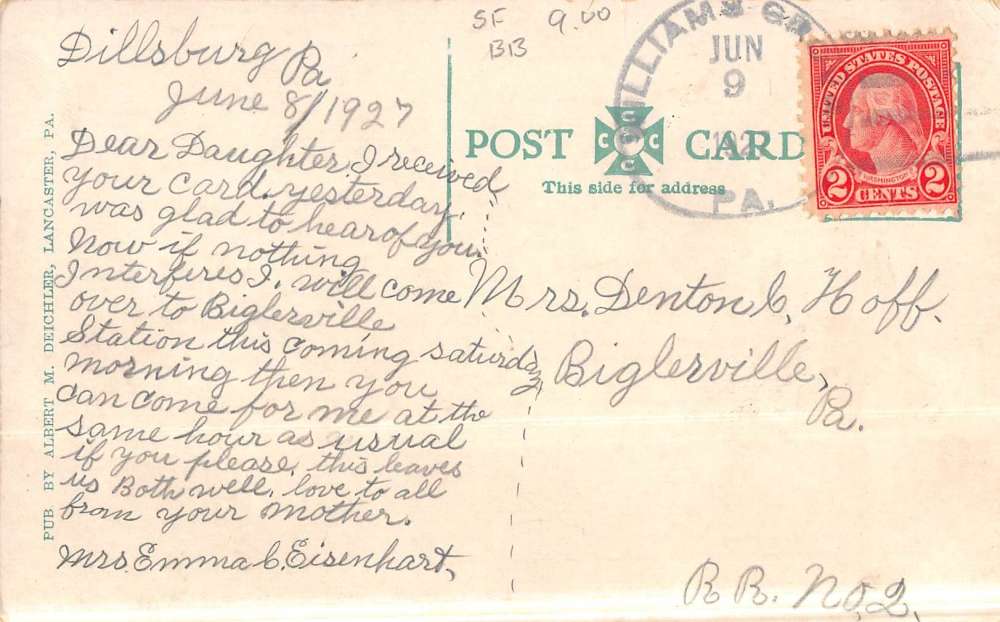 SF 9.00
BB
Dillsburg Pa
June 8/1927
Dear Daughter I received
your card. yesterday.
was glad to hear of you.
Now if nothing
Interferes I. will come
over to Biglerville
Station this coming saturday
morning then you
can come for me at the
same hour as usual
if you please. this leaves
us Both well. love to all
from your mother.
Mrs. Emma C. Eisenhart,
PUB BY ALBERT M. DEICHLER, LANCASTER, PA.
POST CARD
C C C C
This side for address
JUN
9
PA.
UNITED STATES POSTAGE
WASHINGTON
2 CENTS 2
Mrs. Denton C. Hoff.
Biglerville,
Pa.
R R. No, 2.